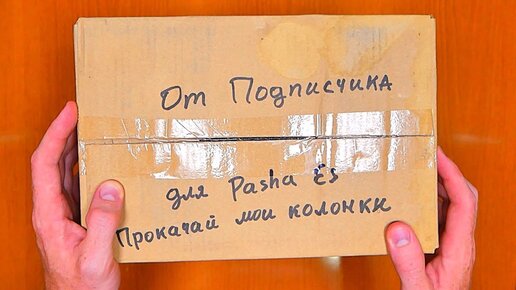 От Подписчика
для Pasha Ës
Прокачай мои колонки